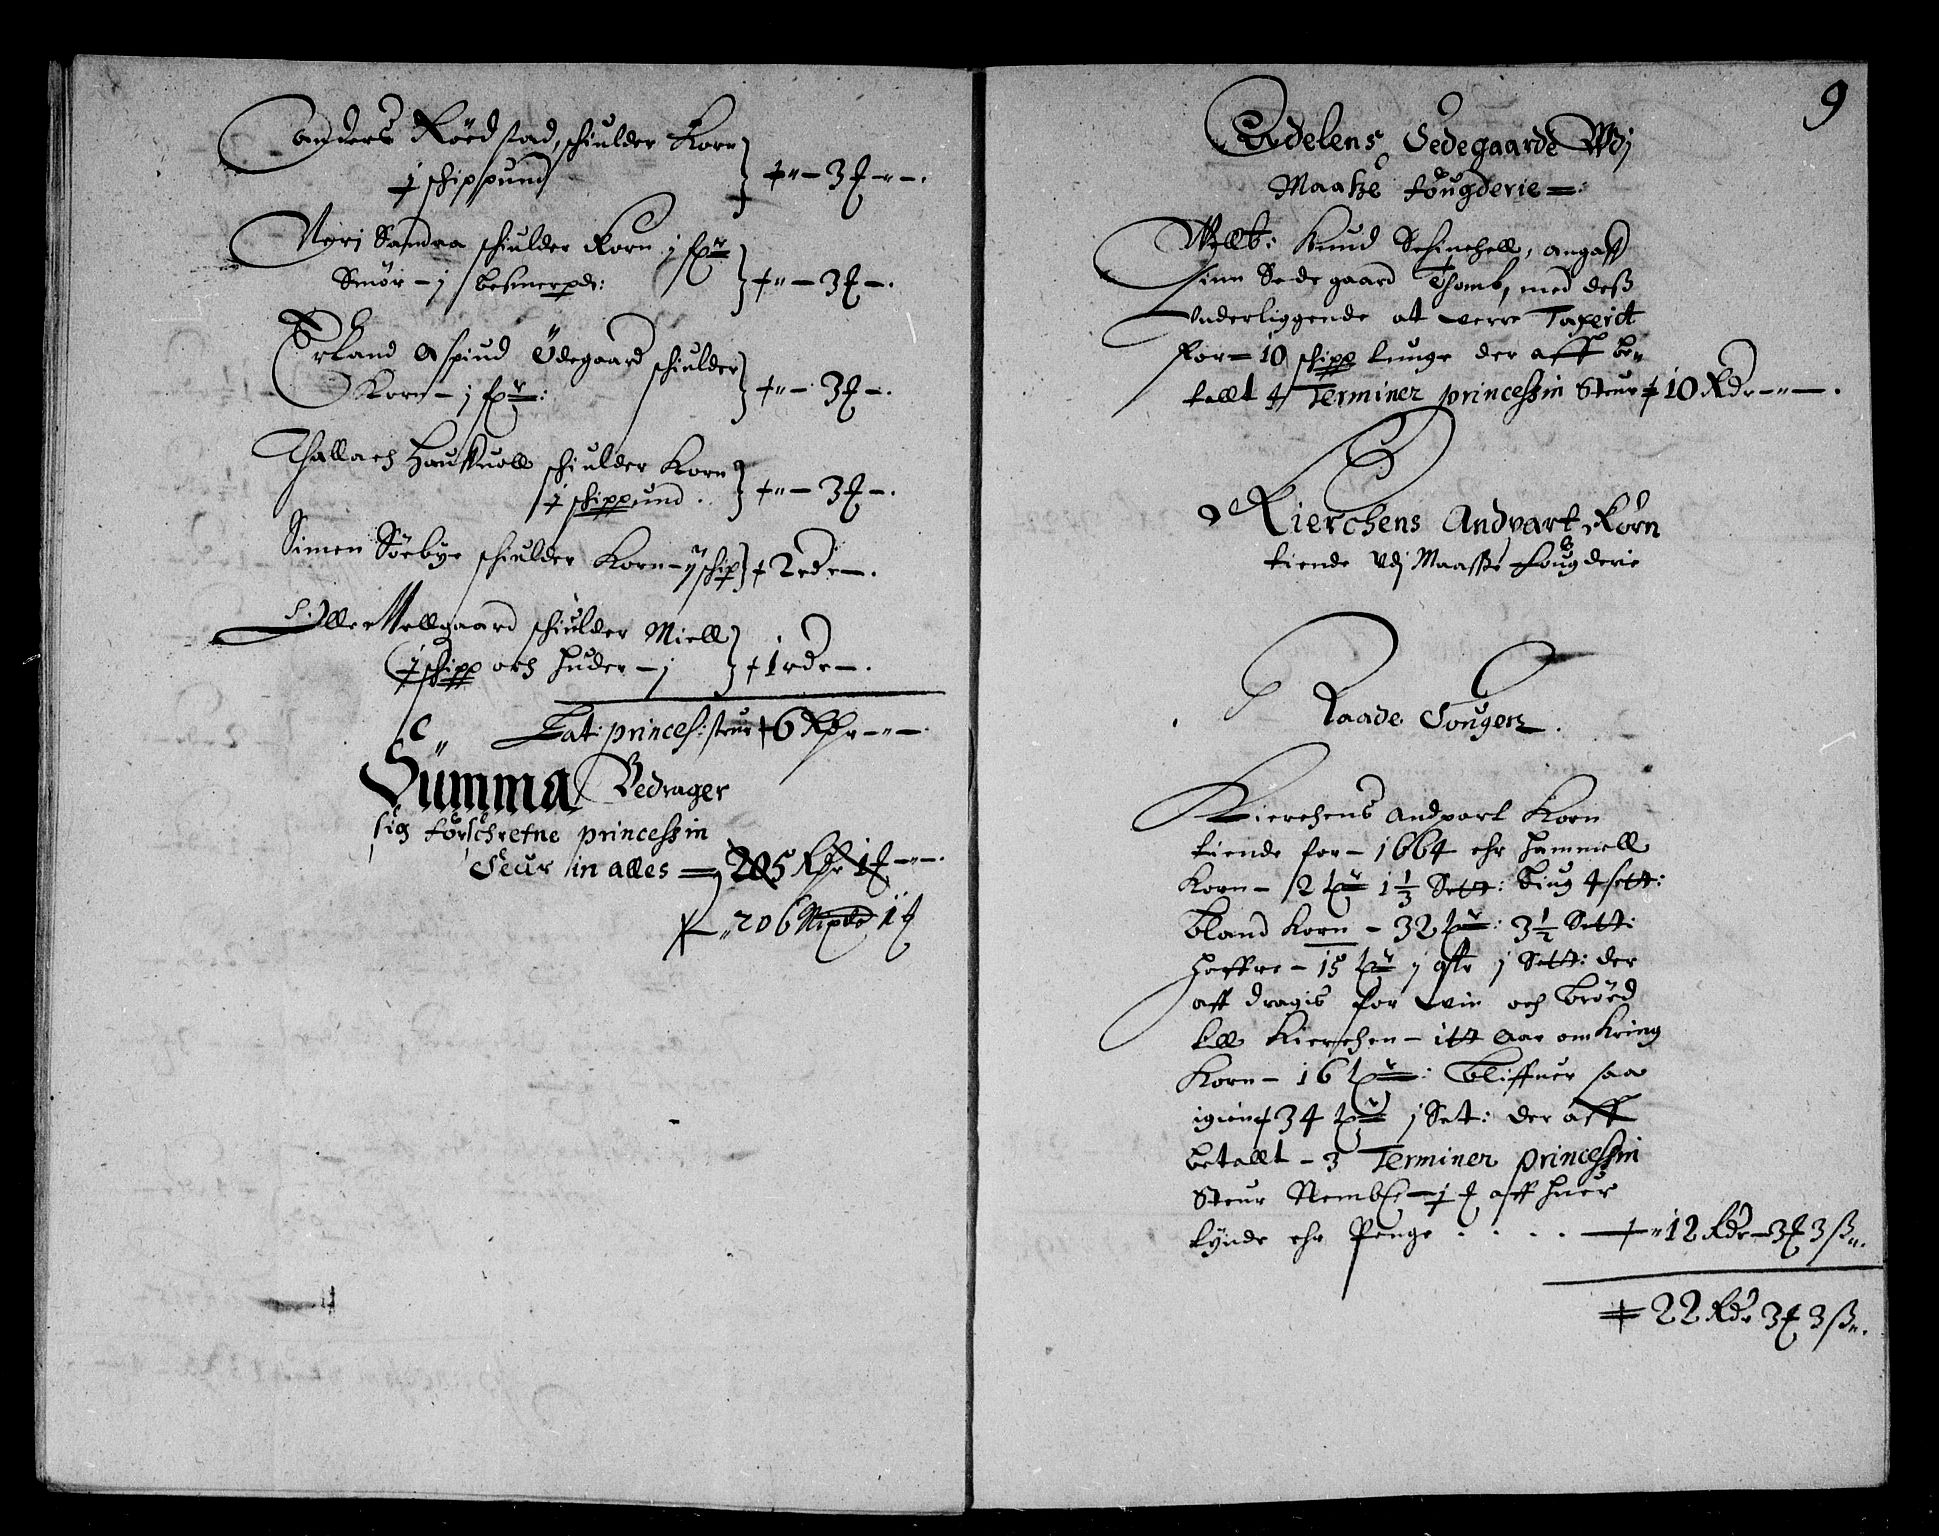 Anders Röed stad, schiulder Korn
j schippund } — 3 ℔ — .
Siuri Sandaa schiulder Korn j
Smör — j besmerpd: } — 3 ℔ — .
Erland Aspiud Ödegaard schiulder
Korn — j } — 3 ℔ — .
Thallach Hauffuoll schiulder Korn
j schippund . } — 3 ℔ — .
Simen Söebye schiulder Korn — ij schip } 2 rdr — .
Oller Mellgaard schiulder Miell
j schipp och Huder — j } 1 rdr — .
Lat: princes: steur 6 Rdr — " — .
Summa Bedrager
sig forschrefne princessin
Steur in alles — 205 Rdr 1 — " — .
206 1
9
Adelens Sedegaarde Vdj
Maatze fougderie — .
Wellb: Knud Schinchell, angaff
sinn Sedegaard Thomb, med dess
Underliggende at verre Taxerit
for — 10 schipp tunge der aff be„
tallt 4 Terminer princessin Steur 10 Rdr — " — .
Kierchens Andpart Korn
tiende Vdj Maasse Fougderie
Raade Sougen .
Kierchens Andpart Korn
tiende for — 1664 ehr Hammell
Korn — 2 1 1/3 Sett: Biug 4 sett:
Bland Korn — 32 : 3 1/2 Sett:
Haffre — 15 j qtr j Sett: der
aff dragis for win och Bröed
till Kierchen — itt Aar omkring
Korn — 16 : Bliffuer saa
igien 34 j Set: der aff
betallt — 3 Terminer princessin
Steur Nembl — 1 aff huer
tynde ehr Penge . . . . — 12 Rdr — 3 3 ß „.
22 Rdr 3 3 ß „.